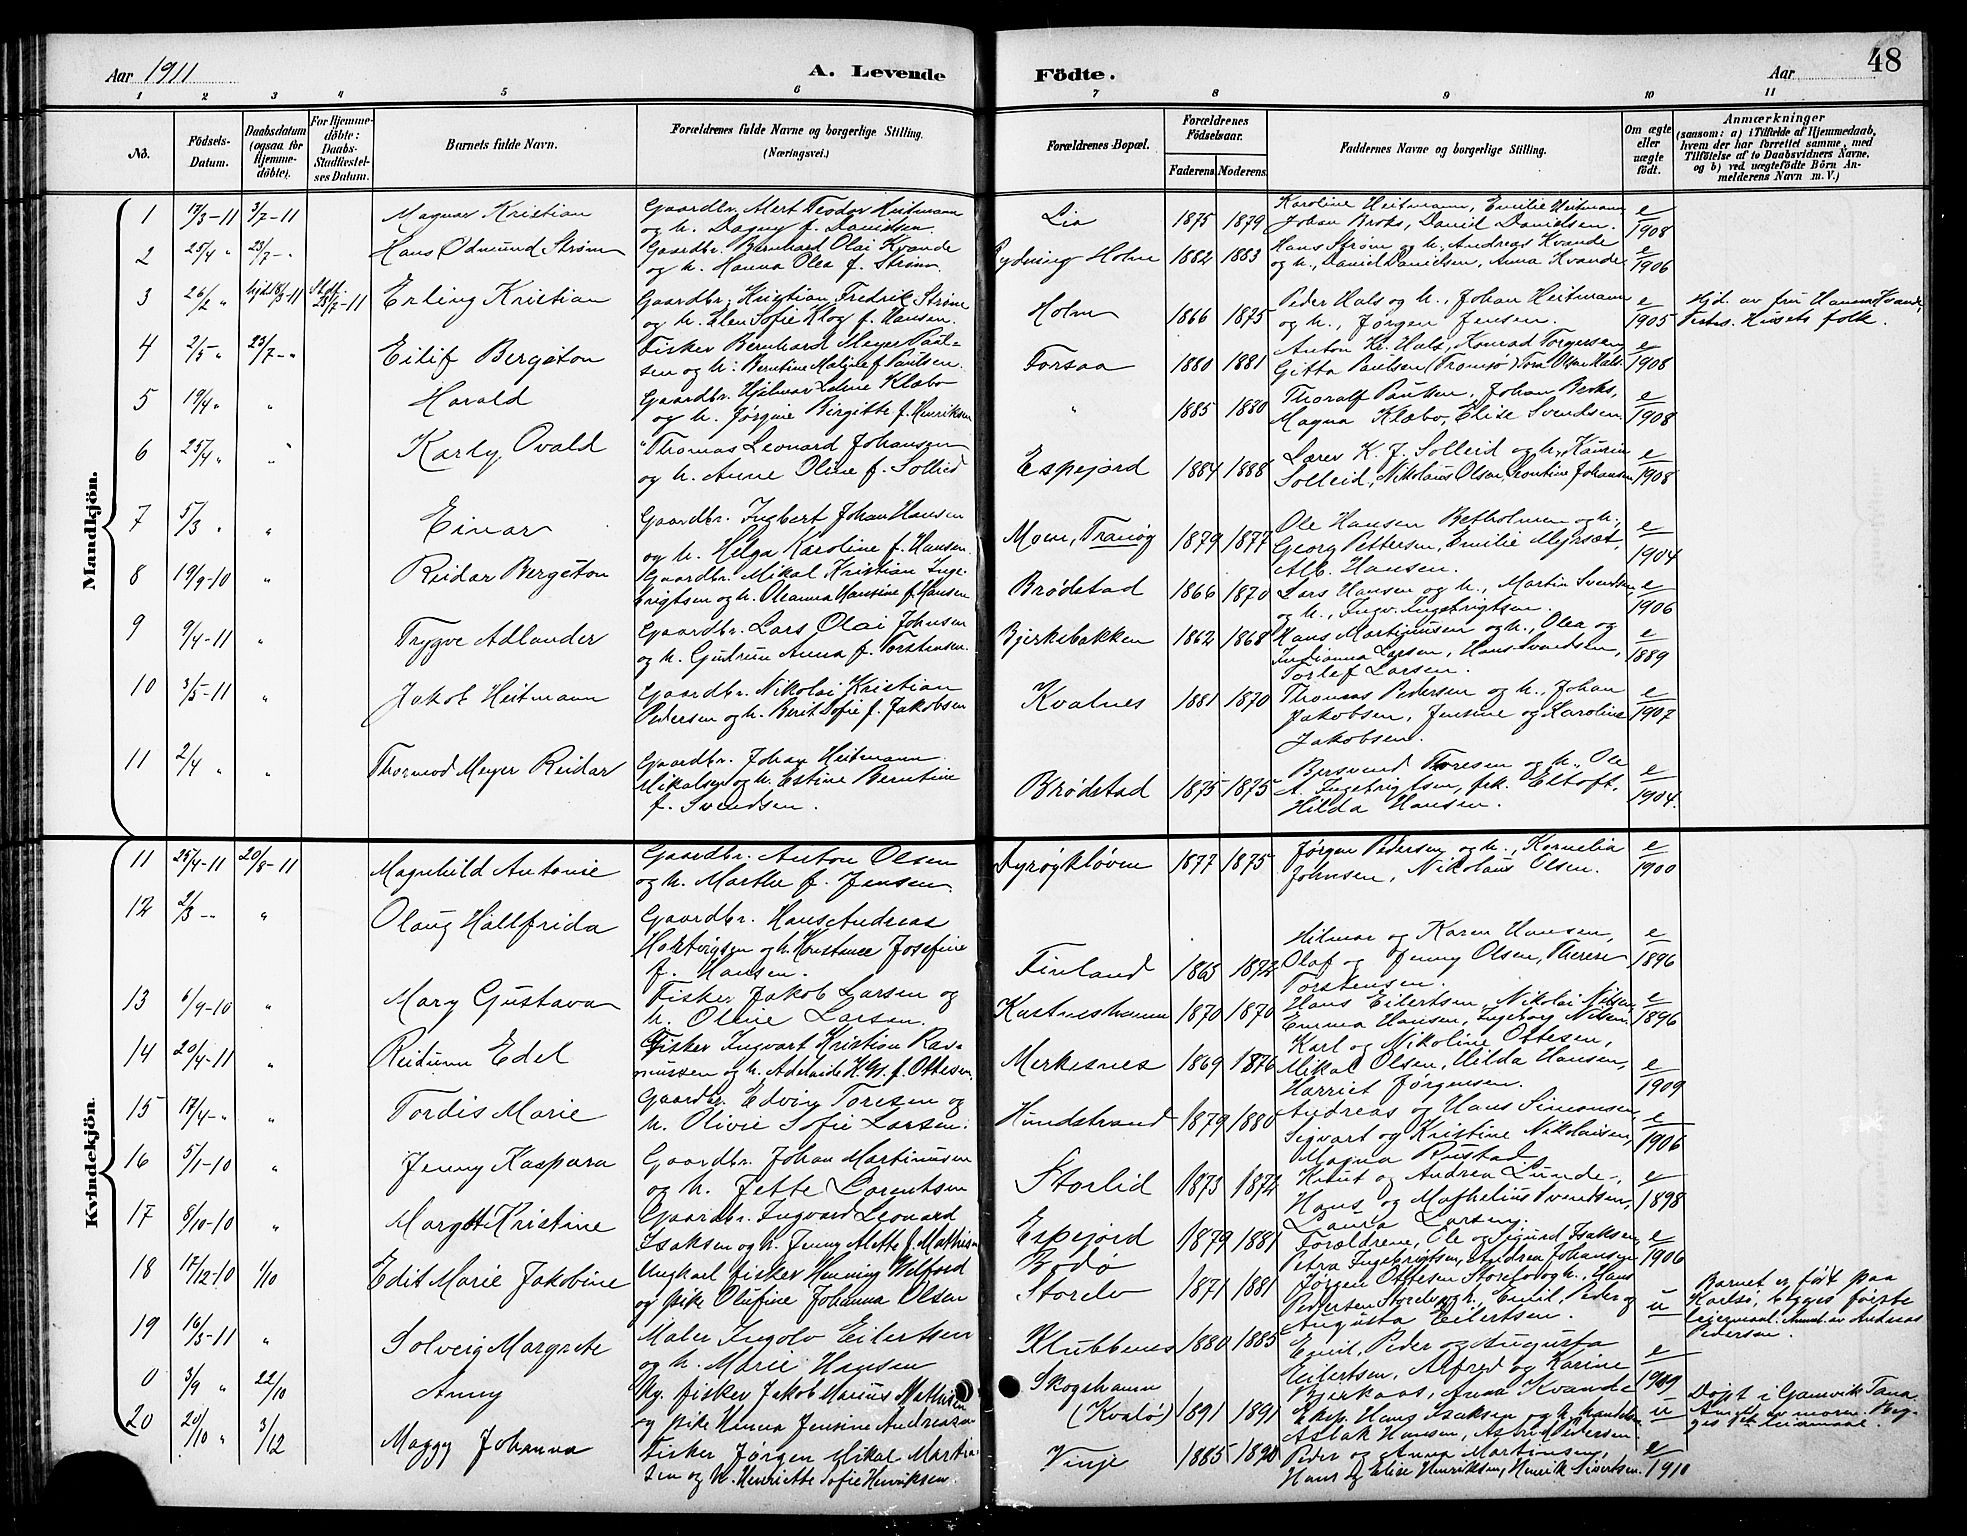 Aar 1911
A. Levende
Födte.
Aar
48
1 2 3 4 5 6 7 8 9 10 11
No.
Födsels-Datum.
Daabsdatum (ogsaa for Hjemme-döbte).
For Hjemme-döbte: Daabs-Stadfæstel-ses Datum.
Barnets fulde Navn.
Forældrenes fulde Navne og borgerlige Stilling.
(Næringsvei.)
Forældrenes Bopæl.
Forældrenes Födselsaar.
Faderens. Moderens.
Faddernes Navne og borgerlige Stilling.
Om ægte eller uægte födt.
Anmærkninger
(saasom: a) i Tilfælde af Hjemmedaab,
hvem der har forrettet samme, med
Tilföielse af to Daabsvidners Navne,
og b) ved uægtefödte Börn An-
melderens Navn m. V.)
Mandkjön.
1 17/3-11 3/7-11 Magnar Kristian
Gaardbr. Alert Teodor Heitmann
og h. Dagny f. Danielsen
Lia 1875 1879
Karoline Heitmann, Emilie Heitmann
Johan Broks, Daniel Danielsen.
e/1908
2 25/4 " 23/7-" Hans Odmund Strøm
Gaardbr. Bernhard Olai Kvande
og h. Hanna Olea f. Strøm.
Rydning Holm 1882 1883
Hans Strøm og h., Andreas Kvande
og h., Daniel Danielsen, Anna Kvande
e/1906
3 26/2 " hjd. 18/3-11 Stdf. 23/7-11 Erling Kristian
Gaardbr. Kristian Fredrik Strøm
og h. Elen Sofie Klog f. Hansen.
Holm 1866 1875
Peder Hals og h., Johan Heitmann
og h., Jørgen Jensen.
e/1905
Hjd. av fru Hanna Kvande,
Testes. Husets folk.
4 2/5 " 23/7-" Eilif Bergeton
Fisker Bernhard Meyer Paul-
sen og h. Berntine f. Paulsen.
Forsaa 1880 1881
Anton Kr. Hals, Konrad Torgersen
Gitta Paulsen (Tromsø) Tora Olsen Hals.
e/1908
5 19/4 " " Harald
Gaardbr. Hjalmar Klæbo
og h. Jørgine Birgitte f. Henriksen
" 1885 1880
Thoralf Paulsen, Johan Broks,
Magna Klæbo, Elise Svendsen
e/1908
6 25/4 " " Karly Ovald
" Thomas Leonard Johansen
og h. Anne Oline f. Sollied
Espejord 1884 1888
Lærer K. J. Solleid og h., Kaurin
Solleid, Nikolaus Olsen, Leontine Johansen
e/1908
7 5/3 " " Einar
Gaardbr. Ingbert Johan Hansen
og h. Helga Karoline f. Hansen.
Moen, Tranøy 1879 1877
Ole Hansen Betholmen og h.,
Georg Pettersen, Emilie Myrset,
Alb. Hansen.
e/1904
8 19/9-10 " Reidar Bergeton
Gaardbr. Mikal Kristian Inge-
brigtsen og h. Oleanna Hansine f. Hansen
Brødstad 1866 1870
Lars Hansen og h., Martin Svendsen
og h., Ingv. Ingebrigtsen.
e/1906
9 9/4-11 " Trygve Adlander
Gaardbr. Lars Olai Johnsen
og h. Gudrun Anna f. Torstensen.
Bjerkebakken 1862 1868
Hans Martinussen og h., Olea og
Indianna Larsen, Hans Svendsen,
Torlef Larsen.
e/1889
10 3/5-11 " Jakob Heitmann
Gaardbr. Nikolai Kristian
Pedersen og h. Berit Sofie f. Jakobsen
Kvalnes 1881 1870
Thomas Pedersen og h., Johan
Jakobsen, Jensine og Karoline
Jakobsen.
e/1907
11 2/4 " " Thormod Meyer Reidar
Gaardbr. Johan Heitmann
Mikalsen og h. Estine Berntine
f. Svendsen.
Brødstad 1875 1875
Bersvend Toresen og h., Ole
A. Ingebrigtsen, frk. Eltoft,
Hilda Hansen.
e/1904.
Kvindekjön
11 25/4-11 20/8-11 Magnhild Antonie
Gaardbr. Anton Olsen
og h. Marthe f. Jensen.
Gyrøykløven 1877 1875
Jørgen Pedersen og h., Kornelia
Johnsen, Nikolaus Olsen.
e/1900
12 2/3 -" " Olaug Hallfrida
Gaardbr. Hans Andreas
Hartvigsen og h. Konstance Josefine
f. Hansen.
Finland 1865 1872
Hilmar og Karen Hansen,
Olaf og Jenny Olsen, Therese
Torstensen.
e/1896
13 6/9-10 " Mary Gustava
Fisker Jakob Larsen og
h. Oline Larsen.
Kastneshamn 1870 1870
Hans Eilertsen, Nikolai Nilsen,
Emma Hansen, Ingeborg Nilsen.
e/1896
14 20/4-11 " Reidunn Edel
Fisker Ingvart Kristian Ras-
mussen og h. Adelaide K. M. f. Ottesen.
Merkesnes 1869 1876
Karl og Nikoline Ottesen,
Mikal Olsen, Hilda Hansen,
Harriet Jørgensen.
e/1909
15 17/4-" " Tordis Marie
Gaardbr. Edvin Toresen og
h. Olivie Sofie Larsen.
Hundstrand 1879 1880
Andreas og Hans Simonsen,
Sigvart og Kristine Nikolaisen,
Magna Rustad.
e/1906
16 5/1-10 " Jenny Kaspara
Gaardbr. Johan Martinusen
og h. Jette Lorentsen
Storlid 1873 1874
Knut og Andrea Lunde,
Hans og Mathelius Svendsen,
Laura Larsen.
e/1898
17 8/10-10 " Margit Kristine
Gaardbr. Ingvard Leonard
Isaksen og h. Jenny Mette f. Mathisen
Espejord 1879 1881
Forældrene, Ole og Sigurd Isaksen,
Petra Ingebrigtsen, Andrea Johansen
e/1906
18 17/12-10 1/10 Edit Marie Jakobine
Ungkarl fisker Henning Wilford
og pike Olufine Johanna Olsen
Bodø
Storelv 1871 1881
Jørgen Ottesen Storelv og h., Hans
Pedersen Storelv og h., Emil, Peder og
Augusta Eilertsen.
u
Barnet er født paa
begges første
leiermaal. Anmt. av Andreas
Pedersen.
19 16/3-11 " Solveig Margrete
Maler Ingolv Eilertsen
og h. Marie Hansen
Klubbenes 1880 1885
Emil, Peder og Augusta
Eilertsen, Alfred og Karine
Bjerkaas, Anna Kvande
e/1909
0 3/9 " 22/10 Anny
Ug. fisker Jakob Marius Mathisen
og pike Hanna Jensine Andreassen
Skogshamn
(Kvalø) 1891 1891
Eksp. Hans Isaksen og h.,
Aslak Hansen, Astrid Pedersen.
u
Døpt i Gamvik Tana
Anmeldt av moren. Beg-
ges 1ste leiermaal.
20 20/10 " 3/12 Maggy Johanna
Fisker Jørgen Mikal Martin-
sen og h. Henriette Sofie Henriksen.
Vinje 1885 1890
Peder og Anna Martinsen,
Hans og Elise Henriksen, Henrik Sivertsen.
e/1910